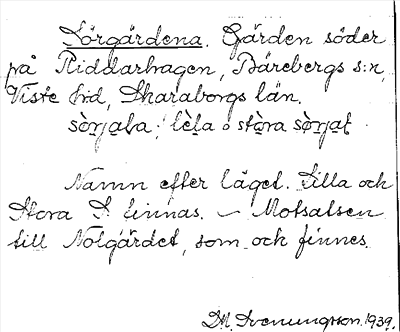 Sörgärdena. Gården söder
på Riddarhagen, Bärebergs s:n,
Viste hd, Skaraborgs län.
sò̤rjaɫa; lèla o stòra sò̤rjaɫ
Namn efter läget. Lilla och
Stora S finnas. – Motsatsen
till Nolgärdet, som och finnes.
M. Svenungsson. 1939.